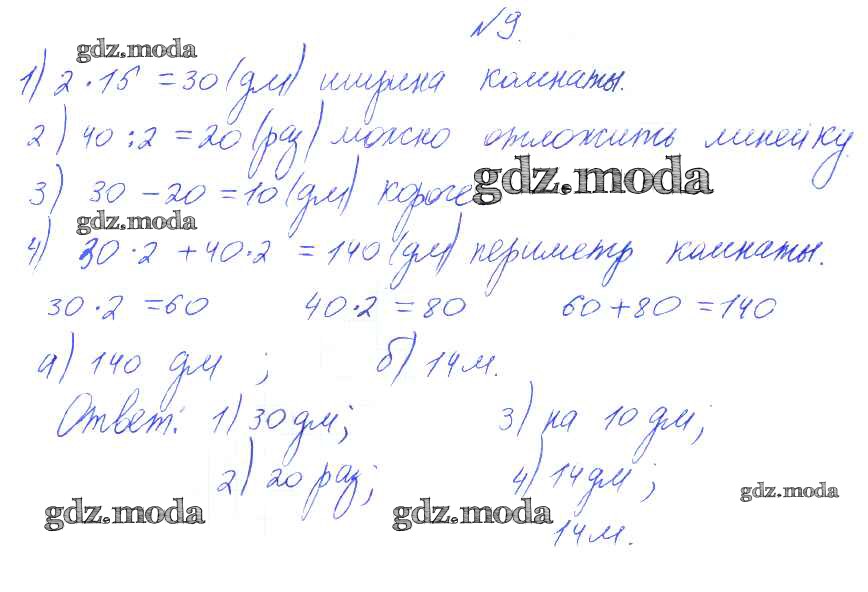 №9.
gdz.moda
1) 2 · 15 = 30 (дм) ширина комнаты.
2) 40 : 2 = 20 (раз) можно отложить линейку.
3) 30 - 20 = 10 (дм) короче
gdz.moda
gdz.moda
4) 30 · 2 + 40 · 2 = 140 (дм) периметр комнаты.
30 · 2 = 60 40 · 2 = 80 60 + 80 = 140
а) 140 дм ; б) 14 м.
Ответ: 1) 30 дм; 3) на 10 дм;
2) 20 раз; 4) 14 дм ;
gdz.moda gdz.moda gdz.moda
14 м.